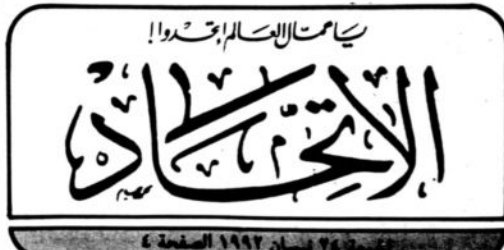 يا عمّال العالم اتحدوا!
الاتحاد
٢٤ نيسان ١٩٩٢ الصفحة ٤